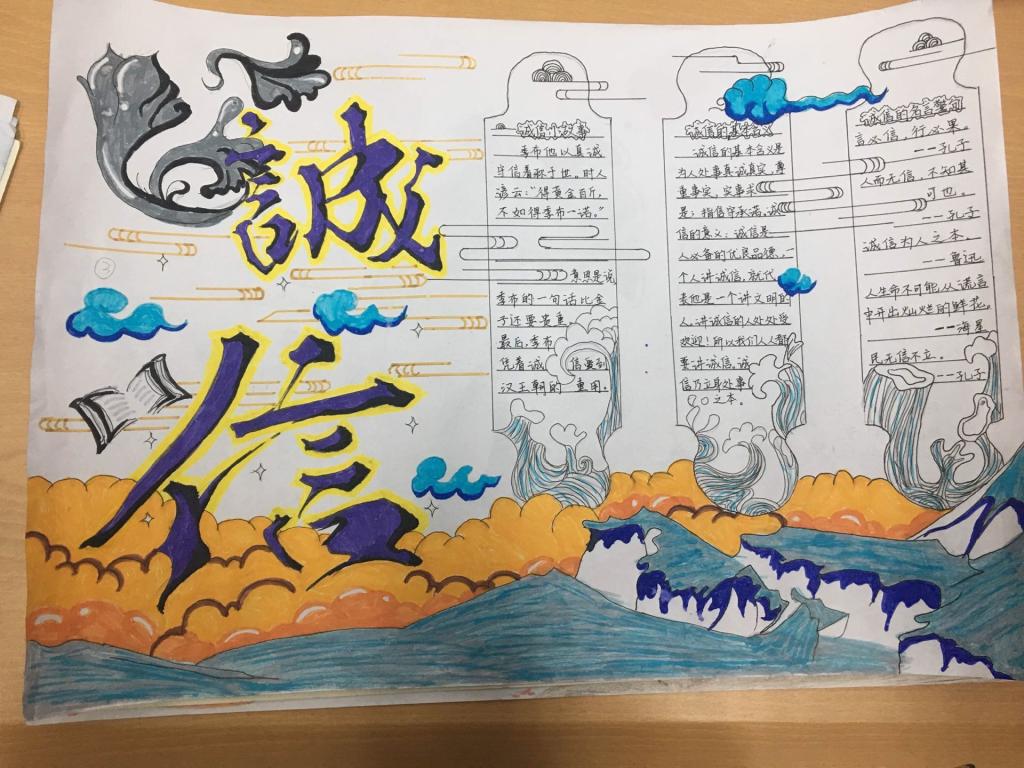 誠
信
③
诚信小故事
季布他以真诚
守信着称于世。时人
谚云:“得黄金百斤,
不如得季布一诺。”
意思是说
季布的一句话比金
子还要贵重。
最后,季布
凭着诚信受到
汉王朝的重用。
诚信的基本含义
诚信的基本含义是
为人处事真诚真实,尊
重事实,实事求
是;指信守承诺,诚
信的意义:诚信是一
人必备的优良品德,一
个人讲诚信,就代
表他是一个讲文明的
人。讲诚信的人处处受
欢迎!所以我们人人都
要讲诚信,诚
信乃立身处事
之本。
诚信的名言警句
言必信,行必果。
——孔子
人而无信,不知其
可也。
——孔子
诚信为人之本。
——鲁迅
人生命不可能从谎言
中开出灿烂的鲜花。
——海星
民无信不立。
——孔子